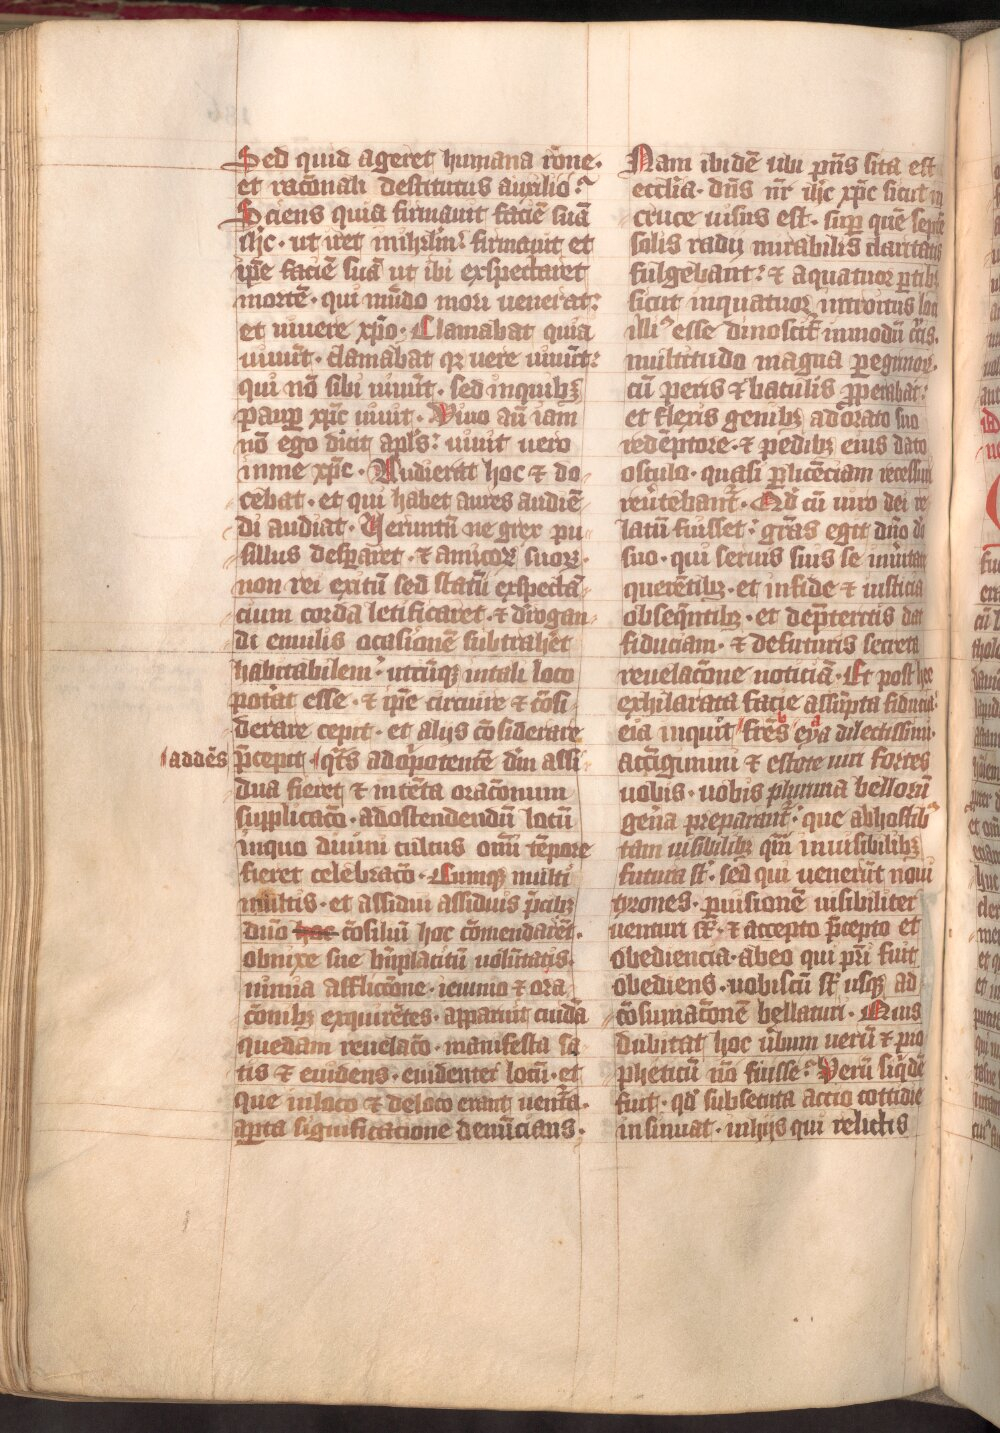 Sed quid ageret humana rōne·
et racōnali destitutus auxilio?
Sciens quia firmauit faciē suā
ih̄c · ut iret in ihrl̄m firmauit et
ip̄e faciē suā ut ibi exspectaret
mortē · qui mūdo mori uenerat:
et uiuere xp̄o · Clamabat quia
uiuūt · clamabat qz uere uiuūt:
qui nō sibi uiuūt · sed in quibz
paup̄ xp̄c uiuit · Viuo aū iam
nō ego dicit apl̄s: uiuit uero
in me xp̄c · Audierat hoc & do-
cebat · et qui habet aures audiē-
di audiat · Veruntū ne grex pu-
sillus desp̄aret · & amicoꝝ suoꝝ ·
non rei exitū sed statū exspectā-
cium corda letificaret · & d̄rogan-
di emulis ocasionē subtrahēt
habitabilem · utcūqz in tali loco
pot̄at esse · & ip̄e circuire & c̄osi-
derare cepit · et alijs c̄osiderare
addēs p̄cepit · q̄t̄s ad o̅ipotentē dm̄ assi-
dua fieret & intēta oracōnum
supplicacō · ad ostendendū locū
in quo diuini cultus om̄i tēpore
fieret celebracō · Cumqz multi
multis · et assidui assiduis p̄cibz
dn̄o hoc c̄osiliū hoc c̄omendarēt ·
obnixe sue bn̄placitū uolūtatis
nimia afflicc̄one · ieiunio & ora-
c̄onibz exquirētes · apparuit cuidā
quedam reuelacō · manifesta sa-
tis & euidens · euidenter locū · et
que in loco & de loco erant uent̄a·
ap̄ta significatione denūcians ·
Nam ibidē ubi p̄ns sita est
ecclia · dn̄s nr̄ ih̄c xp̄c sicut in
cruce uisus est · sup quē septē
solis radij mirabilis claritatis
fulgebant: & a quatuor p̄tibz
sicut in quatuor introitus loci
illi⁹ esse dinoscit̄ in modū c̄ucis·
multitudo magna p̄eginoꝝ ·
cū peris & baculis p̄perabat:
et flexis genibz adorato suo
redēptore · & pedibz eius dato
osculo · quasi p̄ licēciam recessuri
reūtebant̄ · Qd̄ cū uiro dei re-
latū fuisset: gr̄as egit dn̄o do
suo · qui seruis suis se in ūitate
querētibz · et in fide & iusticia
obseqntibz · et de p̄teritis dat
fiduciam · & de futuris secreta
reuelac̄one noticiā · Et post hec
exhilarata facie assūpta fiducia:
eia inquit fr̄es eya dilectissimi ·
acc̄igimini & estote uiri fortes
uobis · uobis plurima bellorū
gen̄a preparant̄ · que ab hostibz
tam uisibilibz q̄m̄ inuisibilibz
futura st̄ · sed qui uenerūt noui
tyrones · p̄uisionē uisibiliter
uenturi st̄ · & accepto p̄cepto et
obediencia · ab eo qui pr̄i fuit
obediens · uobiscū st̄ usqz ad
c̄osumac̄onē bellaturi · Quis
dubitat hoc ūbum uerū & pro-
pheticū nō fuisse? Verū siq̄dē
fuit · qd̄ subsecuta actio cottidie
insinuat · in hijs qui relictis